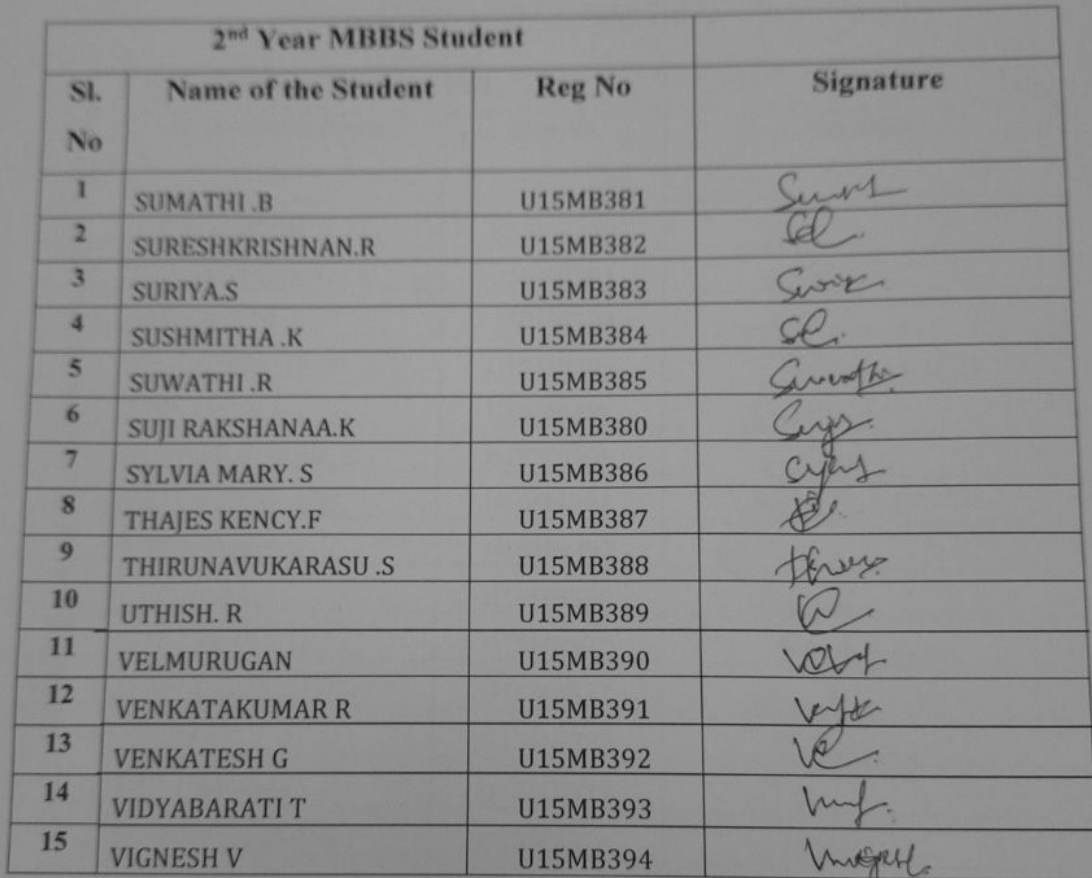 2nd Year MBBS Student
Sl. No Name of the Student Reg No Signature
1 SUMATHI .B U15MB381
2 SURESHKRISHNAN.R U15MB382
3 SURIYA.S U15MB383
4 SUSHMITHA .K U15MB384
5 SUWATHI .R U15MB385 Suwathi
6 SUJI RAKSHANAA.K U15MB380
7 SYLVIA MARY. S U15MB386
8 THAJES KENCY.F U15MB387
9 THIRUNAVUKARASU .S U15MB388
10 UTHISH. R U15MB389
11 VELMURUGAN U15MB390
12 VENKATAKUMAR R U15MB391
13 VENKATESH G U15MB392
14 VIDYABARATI T U15MB393
15 VIGNESH V U15MB394